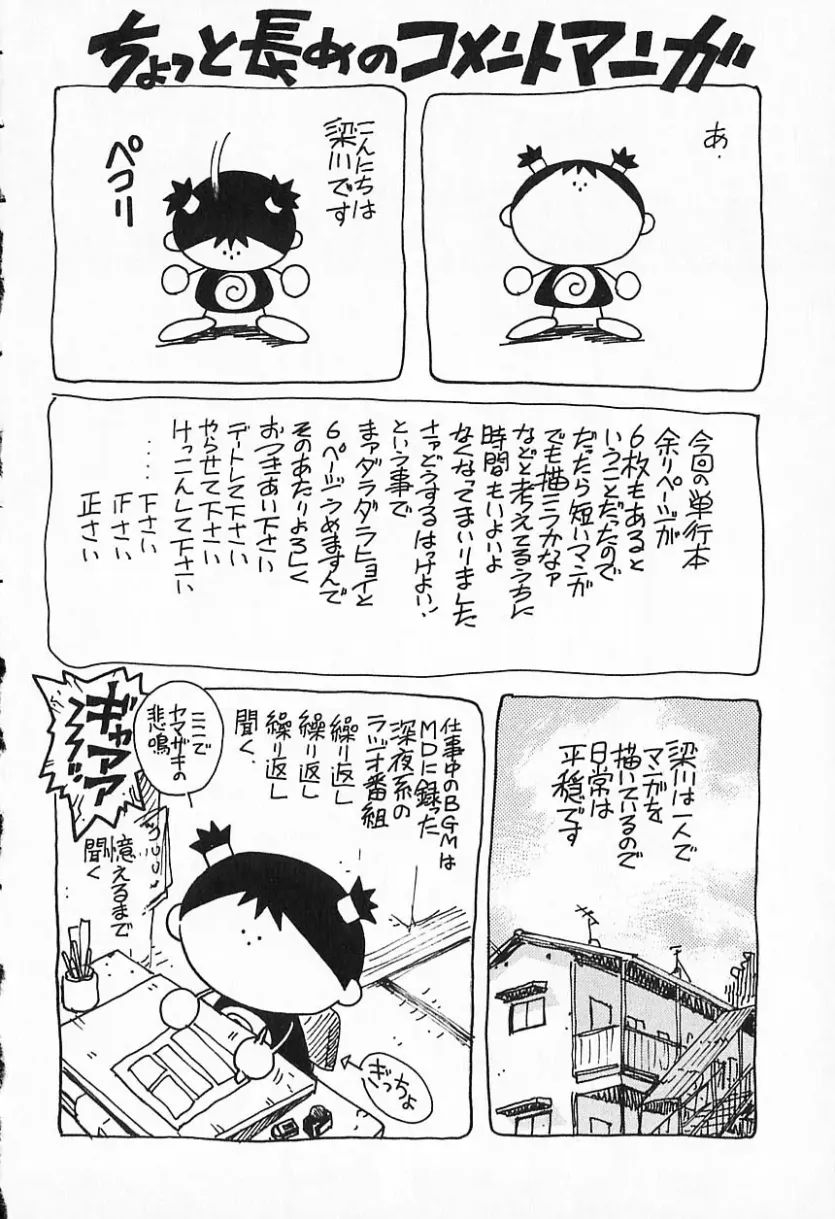 ちょっと長めのコメントマンガ
あ.
こんにちは
梁川です
ペコリ
今回の単行本
余りページが
6枚もあると
いうことだったので
だったら短いマンガ
でも描こうかなァ
などと考えてるうちに
時間もいよいよ
なくなってまいりました
さァどうするはっけよい!
という事で
まァダラダラヒョイと
6ページうめますんで
そのあたりよろしく
おつきあい下さい
デートして下さい
やらせて下さい
けっこんして下さい
‥‥下さい
正さい
正さい
梁川は一人で
マンガを
描いているので
日常は
平穏です
仕事中のBGMは
MDに録った
深夜系の
ラジオ番組
繰り返し
繰り返し
繰り返し
聞く.
ここで
ヤマザキの
悲鳴
ギャアアア
憶えるまで
聞く
ぎっちょ